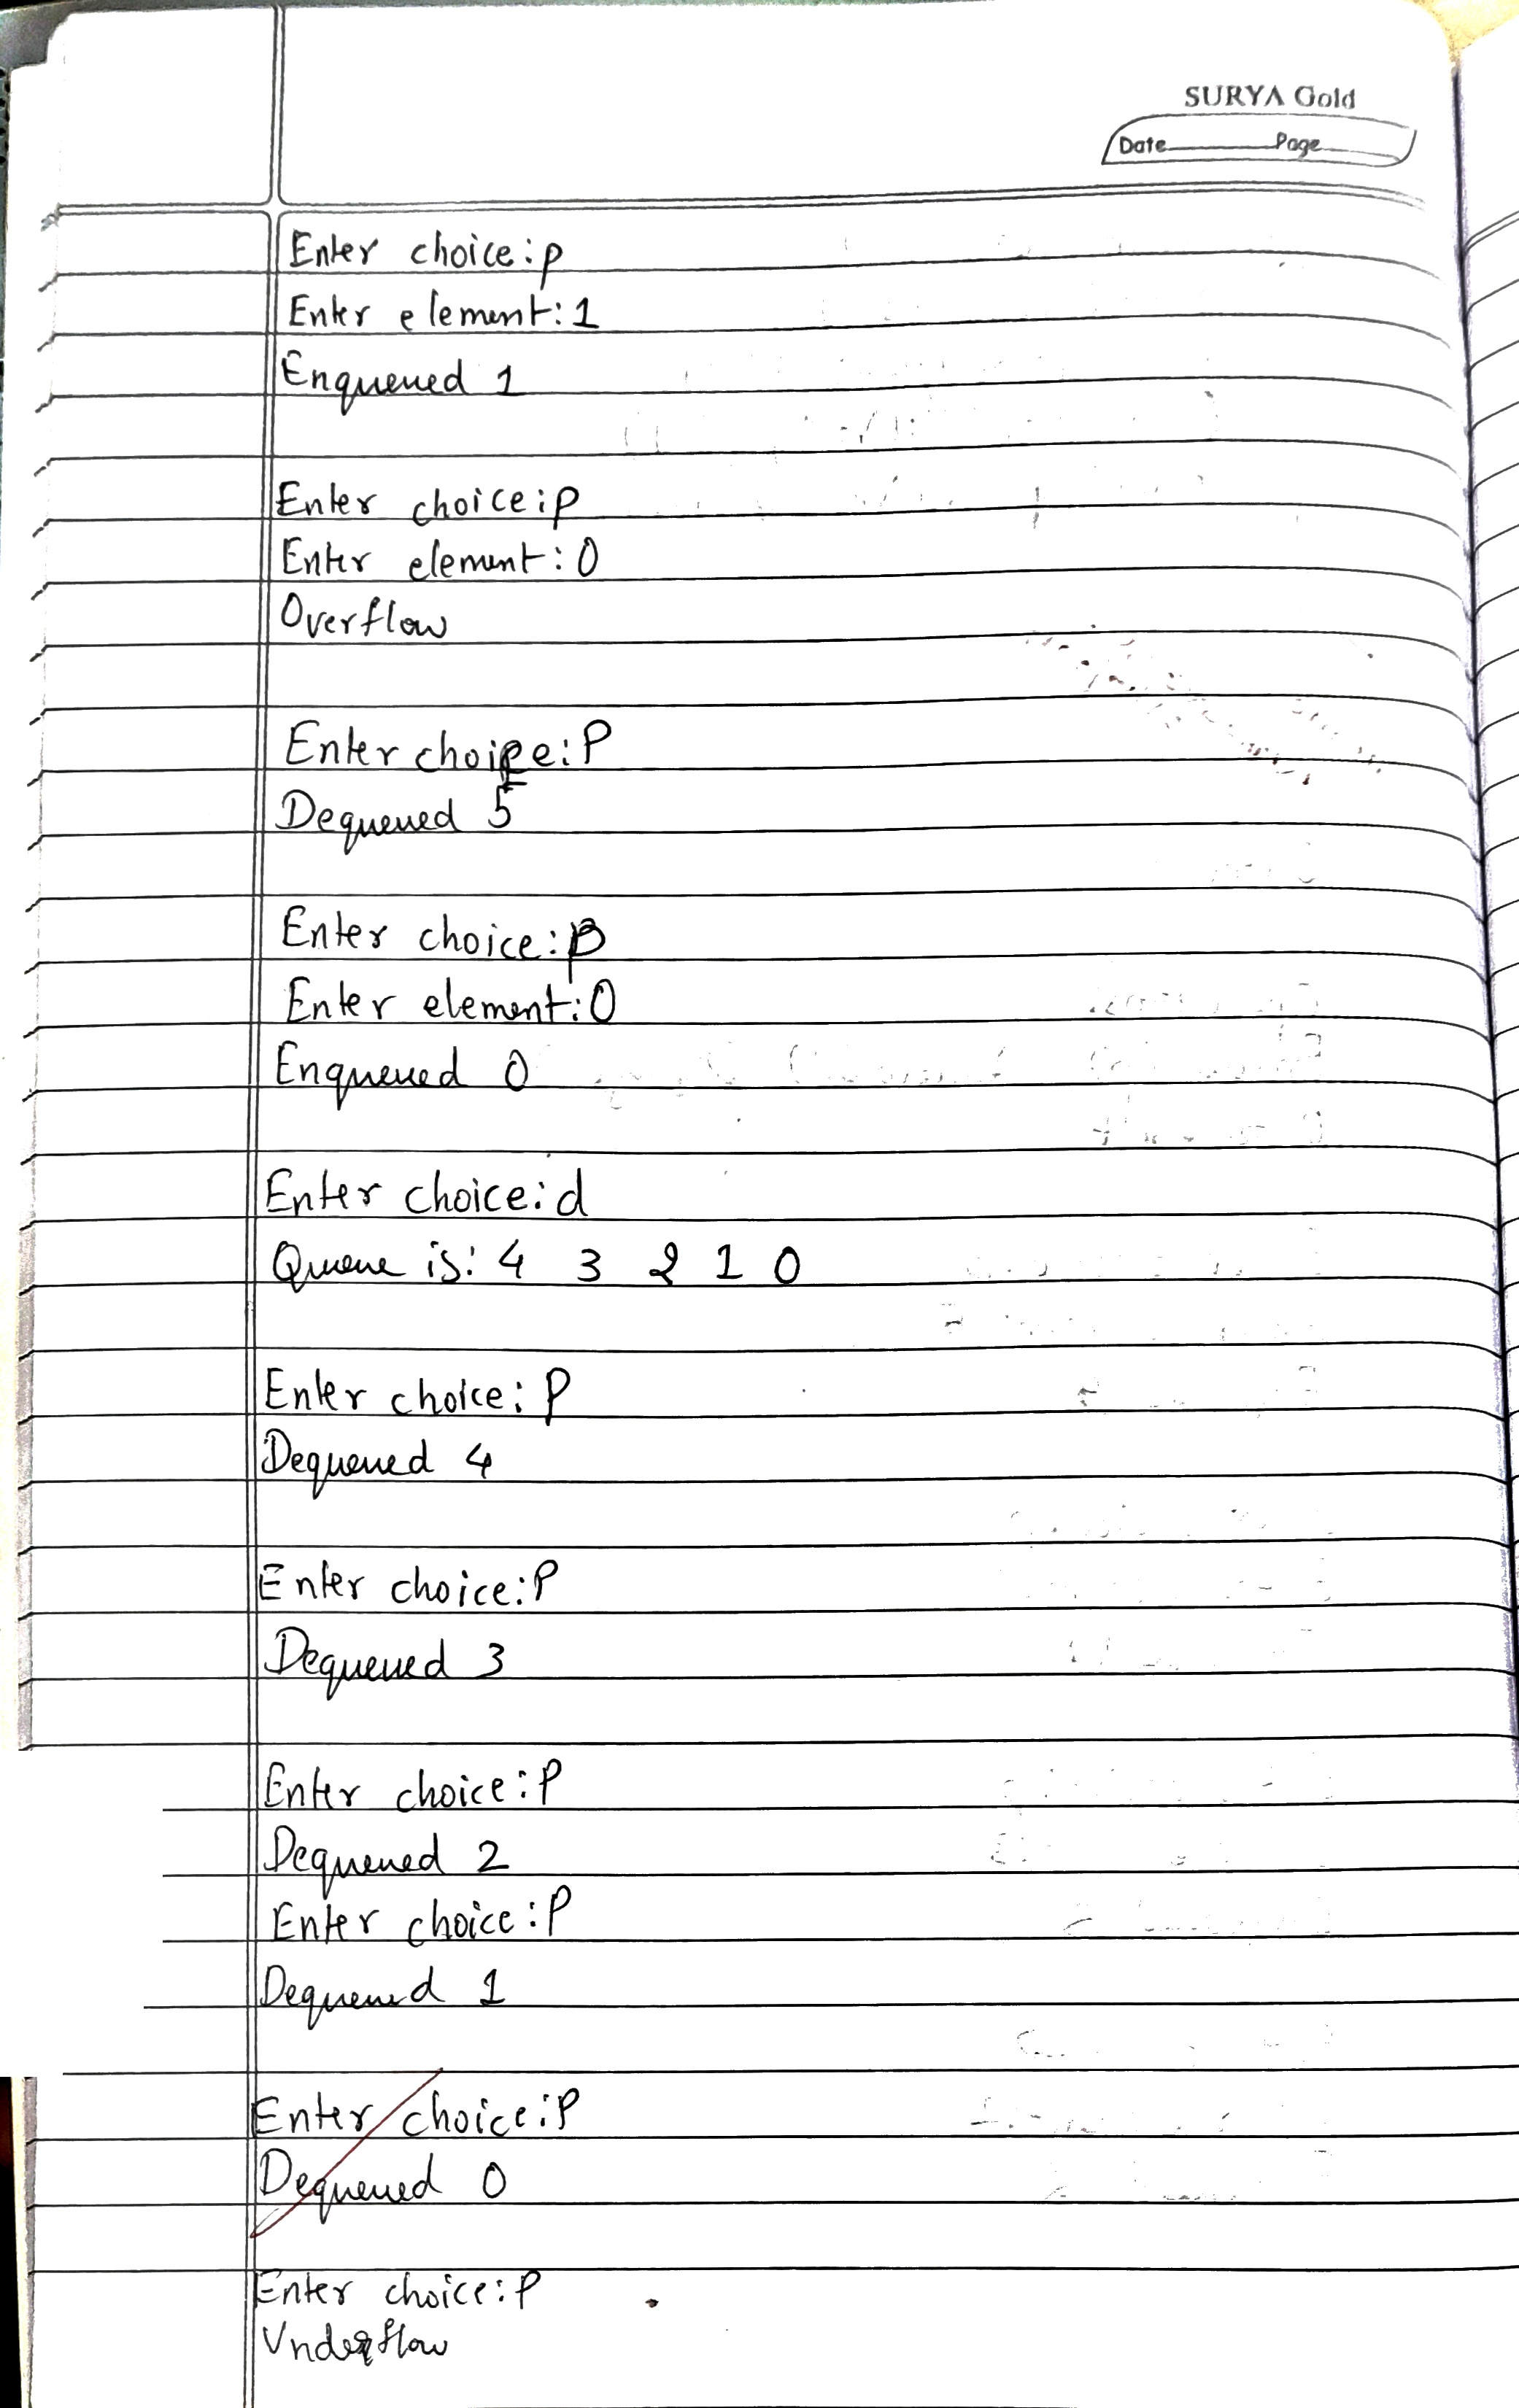 SURYA Gold
Date Page
Enter choice:p
Enter element:1
Enqueued 1
Enter choice:p
Enter element:0
Overflow
Enter choice:P
Dequeued 5
Enter choice:p
Enter element:0
Enqueued 0
Enter choice:d
Queue is: 4 3 2 1 0
Enter choice:P
Dequeued 4
Enter choice:P
Dequeued 3
Enter choice:P
Dequeued 2
Enter choice:P
Dequeued 1
Enter choice:P
Dequeued 0
Enter choice:P
Underflow